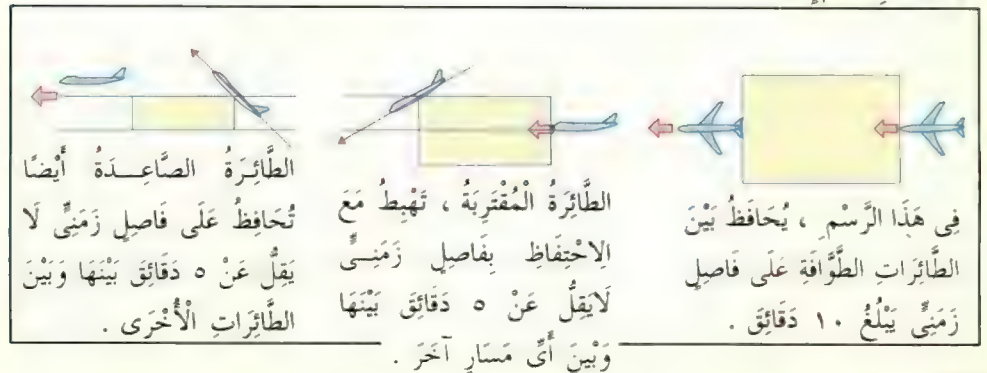 فِى هَذَا الرَّسْمِ ، يُحَافَظُ بَيْنَ
الطَّائِرَاتِ الطَّوَّافَةِ عَلَى فَاصِلٍ
زَمَنِىٍّ يَبْلُغُ ١٠ دَقَائِقَ .
الطَّائِرَةُ الْمُقْتَرِبَةُ ، تَهْبِطُ مَعَ
الِاحْتِفَاظِ بِفَاصِلٍ زَمَنِــىٍّ
لَايَقِلُّ عَنْ ٥ دَقَائِقَ بَيْنَهَا
وَبَيْنَ أَىِّ مَسَارٍ آخَرَ .
الطَّائِـرَةُ الصَّاعِــدَةُ أَيْضًا
تُحَافِظُ عَلَى فَاصِلٍ زَمَنِىٍّ لَا
يَقِلُّ عَنْ ٥ دَقَائِقَ بَيْنَهَا وَبَيْنَ
الطَّائِرَاتِ الْأُخْرَى .